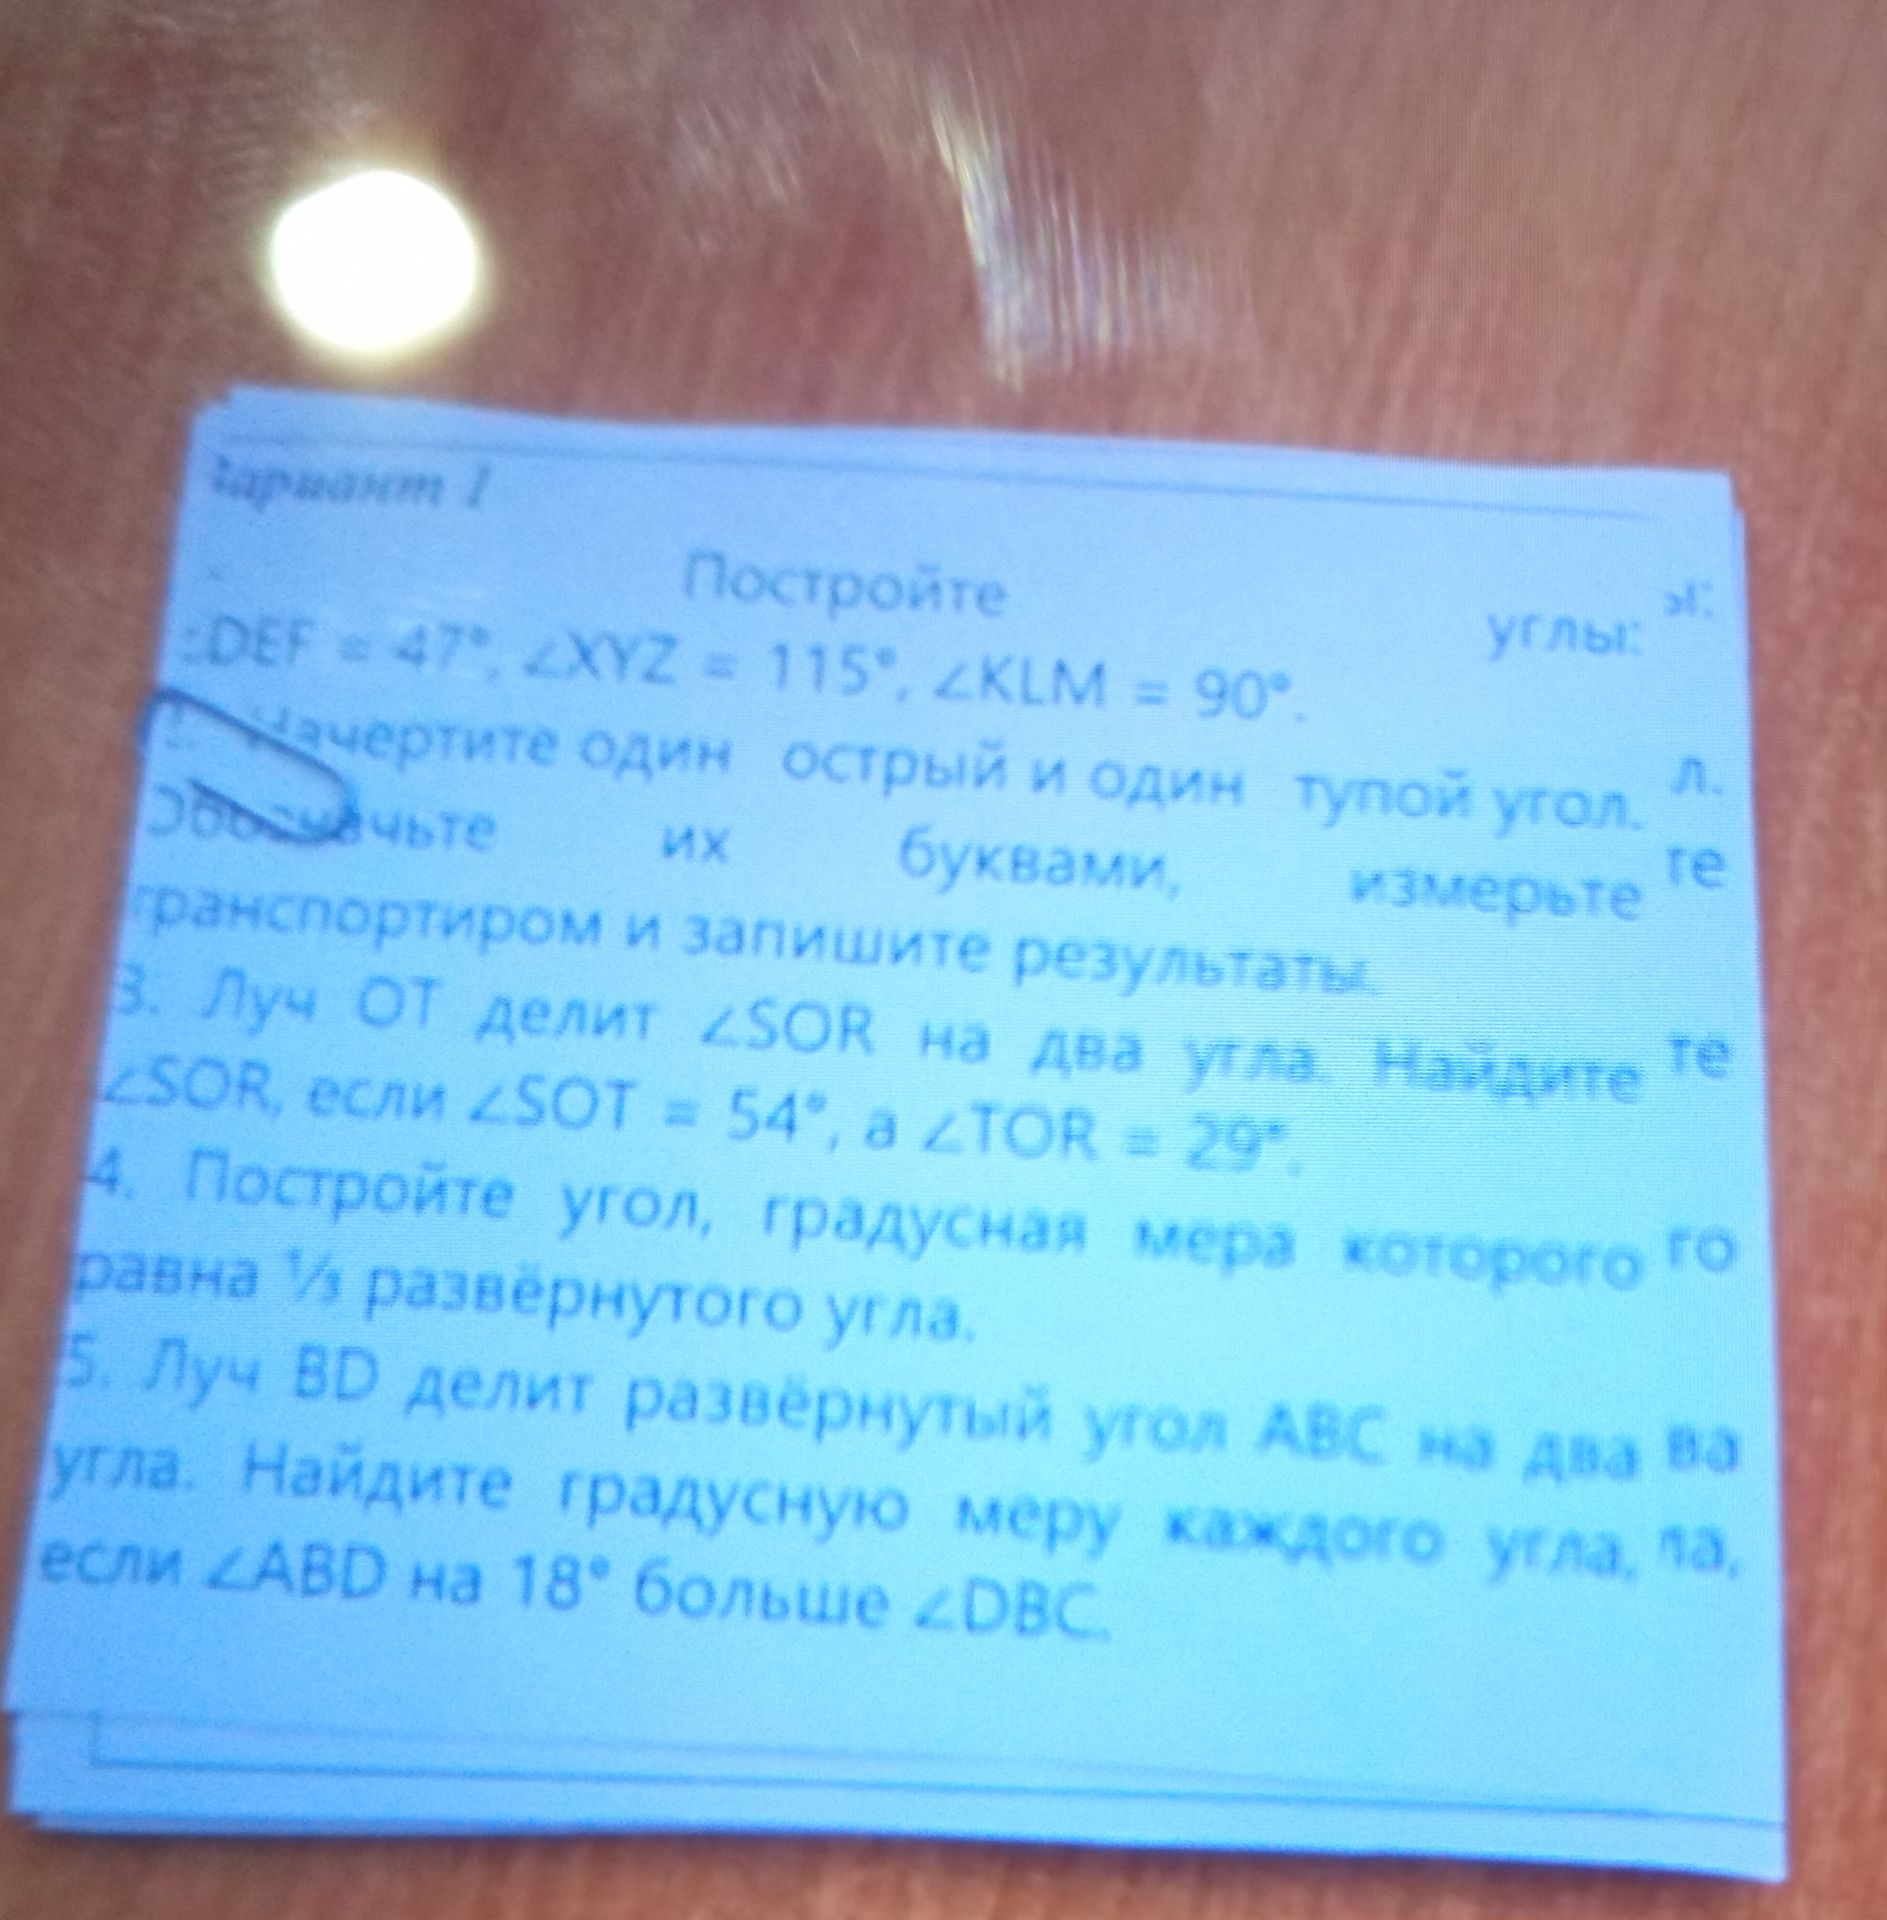 Вариант 1
Постройте углы: ы:
∠DEF = 47°, ∠XYZ = 115°, ∠KLM = 90°.
2. Начертите один острый и один тупой угол. л.
Обозначьте их буквами, измерьте те
транспортиром и запишите результаты.
3. Луч OT делит ∠SOR на два угла. Найдите те
∠SOR, если ∠SOT = 54°, а ∠TOR = 29°.
4. Постройте угол, градусная мера которого го
равна ⅓ развёрнутого угла.
5. Луч BD делит развёрнутый угол ABC на два ва
угла. Найдите градусную меру каждого угла, ла,
если ∠ABD на 18° больше ∠DBC.